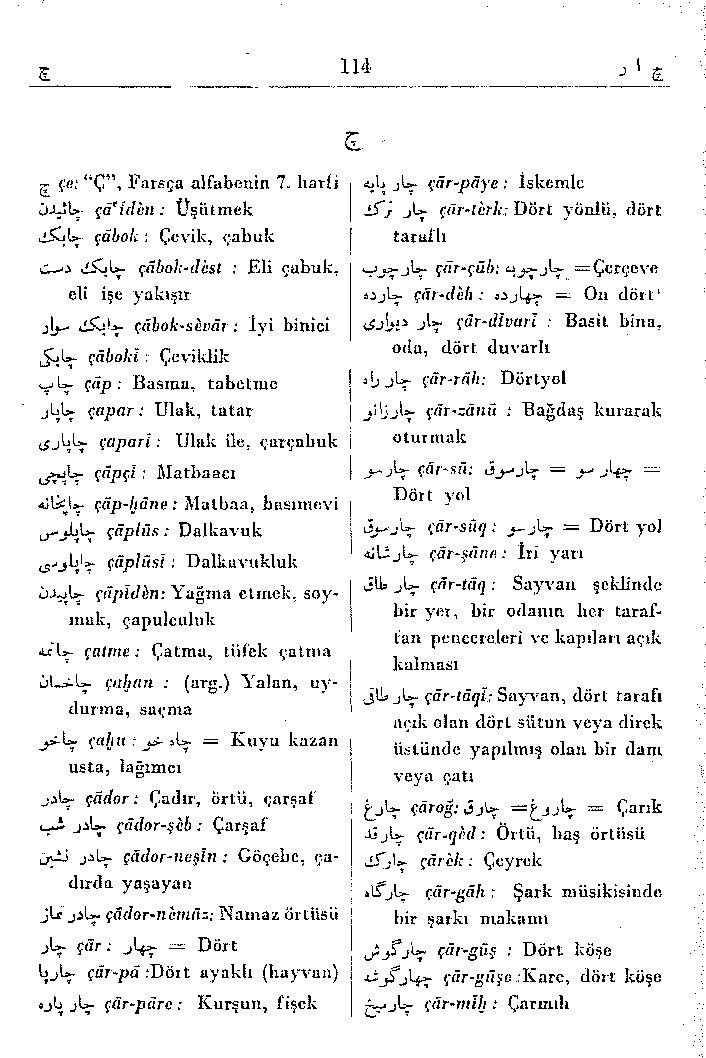 چ 114 چ ا ر
چ
چ çe: “Ç”, Farsça alfabenin 7. harfi
چائیدن çā'idèn : Üşütmek
چابک çābok : Çevik, çabuk
چابک دست çābok-dèst : Eli çabuk,
eli işe yakışır
چابک سوار çābok-sèvār : İyi binici
چابکی çābokī : Çeviklik
چاپ çāp : Basma, tabetme
چاپار çapar : Ulak, tatar
چاپاری çaparī : Ulak ile, çarçabuk
چاپچی çāpçī : Matbaacı
چاپخانه çāp-ḫāne : Matbaa, basımevi
چاپلوس çāplūs : Dalkavuk
چاپلوسی çāplūsī : Dalkavukluk
چاپیدن çāpīdèn: Yağma etmek, soy-
mak, çapulculuk
چاتمه çatme : Çatma, tüfek çatma
چاخان çaḫan : (arg.) Yalan, uy-
durma, saçma
چاخو çaḫu : چاه خو = Kuyu kazan
usta, lağımcı
چادر çādor : Çadır, örtü, çarşaf
چادر شب çādor-şèb : Çarşaf
چادر نشین çādor-neşīn : Göçebe, ça-
dırda yaşayan
چادر نماز çādor-nèmāz: Namaz örtüsü
چار çār : چهار = Dört
چارپا çār-pā :Dört ayaklı (hayvan)
چار پاره çār-pāre : Kurşun, fişek
چار پایه çār-pāye : İskemle
چار ترک çār-tèrk: Dört yönlü, dört
taraflı
چارچوب çār-çūb: چارچوبه =Çerçeve
چارده çār-dèh : چهارده = On dört
چار دیواری çār-dīvarī : Basit bina,
oda, dört duvarlı
چار راه çār-rāh: Dörtyol
چارزانو çār-zānū : Bağdaş kurarak
oturmak
چارسو çār-sū: چهار سو = چارسوق =
Dört yol
چارسوق çār-sūq : چارسو = Dört yol
چارشانه çār-şāne : İri yarı
چار طاق çār-tāq : Sayvan şeklinde
bir yer, bir odanın her taraf-
tan pencereleri ve kapıları açık
kalması
چار طاقی çār-tāqī: Sayvan, dört tarafı
açık olan dört sütun veya direk
üstünde yapılmış olan bir dam
veya çatı
چارغ çāroğ: چارق =چاروغ = Çarık
چارقد çār-qèd : Örtü, baş örtüsü
چارک çārèk : Çeyrek
چارگاه çār-gāh : Şark müsikisinde
bir şarkı makamı
چارگوش çār-gūş : Dört köşe
چهارگوشه çār-gūşe :Kare, dört köşe
چارمیخ çār-mīḫ : Çarmıh